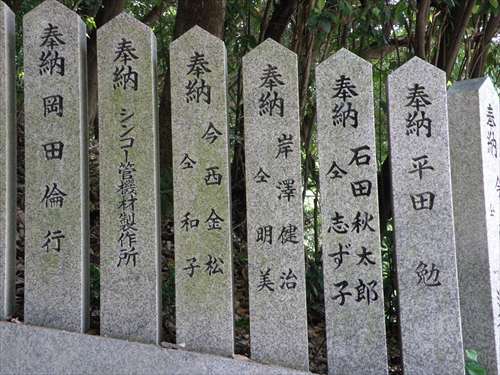 奉納 岡田倫行
奉納 シンコー管機材製作所
奉納 今西金松
仝 和子
奉納 岸澤健治
仝 明美
奉納 石田秋太郎
仝 志ず子
奉納 平田 勉
奉納